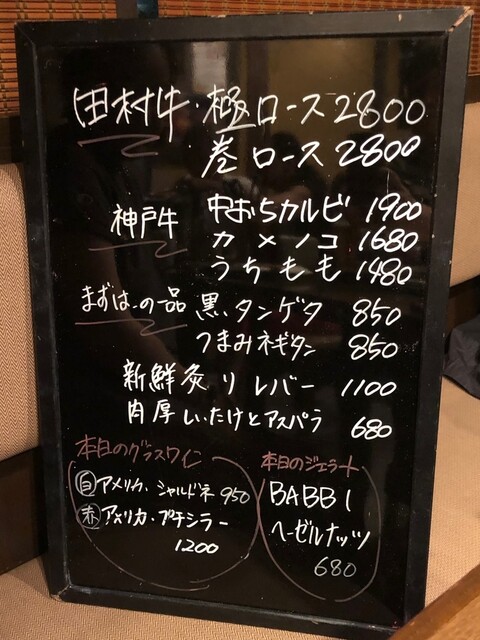 田村牛・極ロース 2800
巻ロース 2800
神戸牛 中おちカルビ 1900
カメノコ 1680
うちもも 1480
まずは一品 黒タンゲタ 850
つまみネギタン 850
新鮮炙りレバー 1100
肉厚しいたけとアスパラ 680
本日のグラスワイン
白 アメリカ・シャルドネ 950
赤 アメリカ・プチシラー
1200
本日のジェラート
BABBI
ヘーゼルナッツ
680